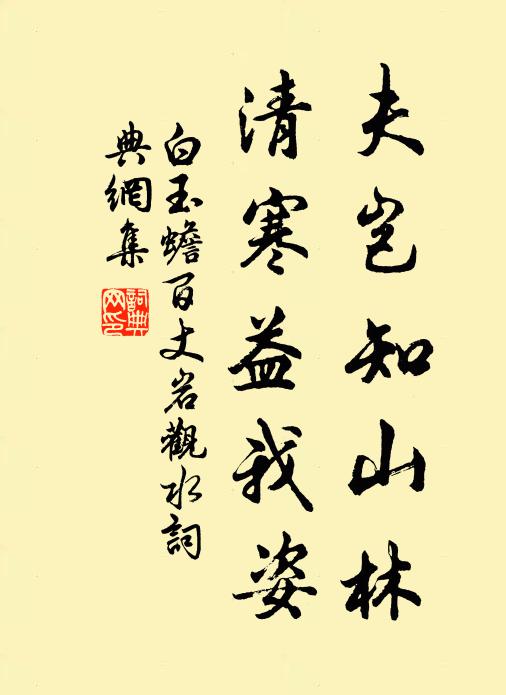 夫岂知山林
清寒益我姿
白玉蟾百丈岩觀水詞
典網集
詞典
网印